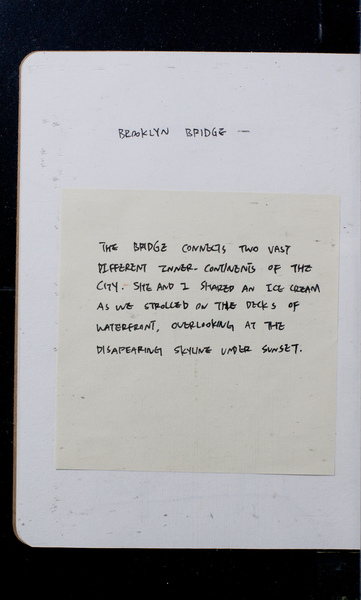 BROOKLYN BRIDGE —
THE BRIDGE CONNECTS TWO VAST
DIFFERENT INNER CONTINENTS OF THE
CITY. SHE AND I SHARED AN ICE CREAM
AS WE STROLLED ON THE DECKS OF
WATERFRONT, OVERLOOKING AT THE
DISAPEARING SKYLINE UNDER SUNSET.